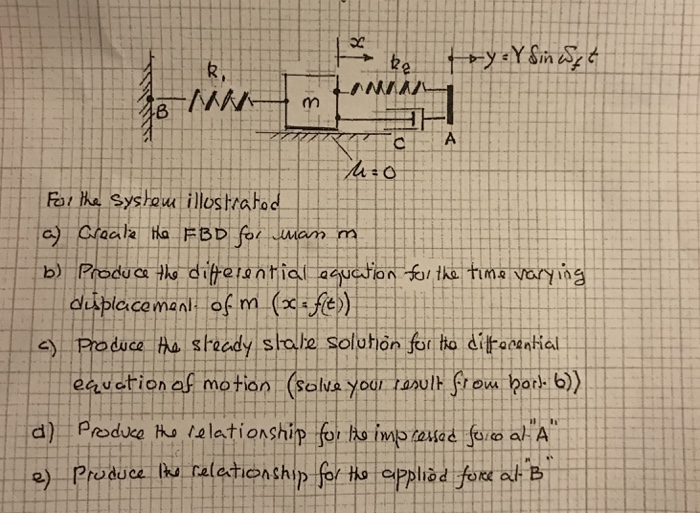 x
k₂
y = Y Sin ω_f t
k₁
B
m
C
A
μ = 0
For the system illustrated
a) Create the FBD for mass m
b) Produce the differential equation for the time varying
displacement of m (x = f(t))
c) Produce the steady state solution for the differential
equation of motion (solve your result from part b))
d) Produce the relationship for the impressed force at "A"
e) Produce the relationship for the applied force at "B"